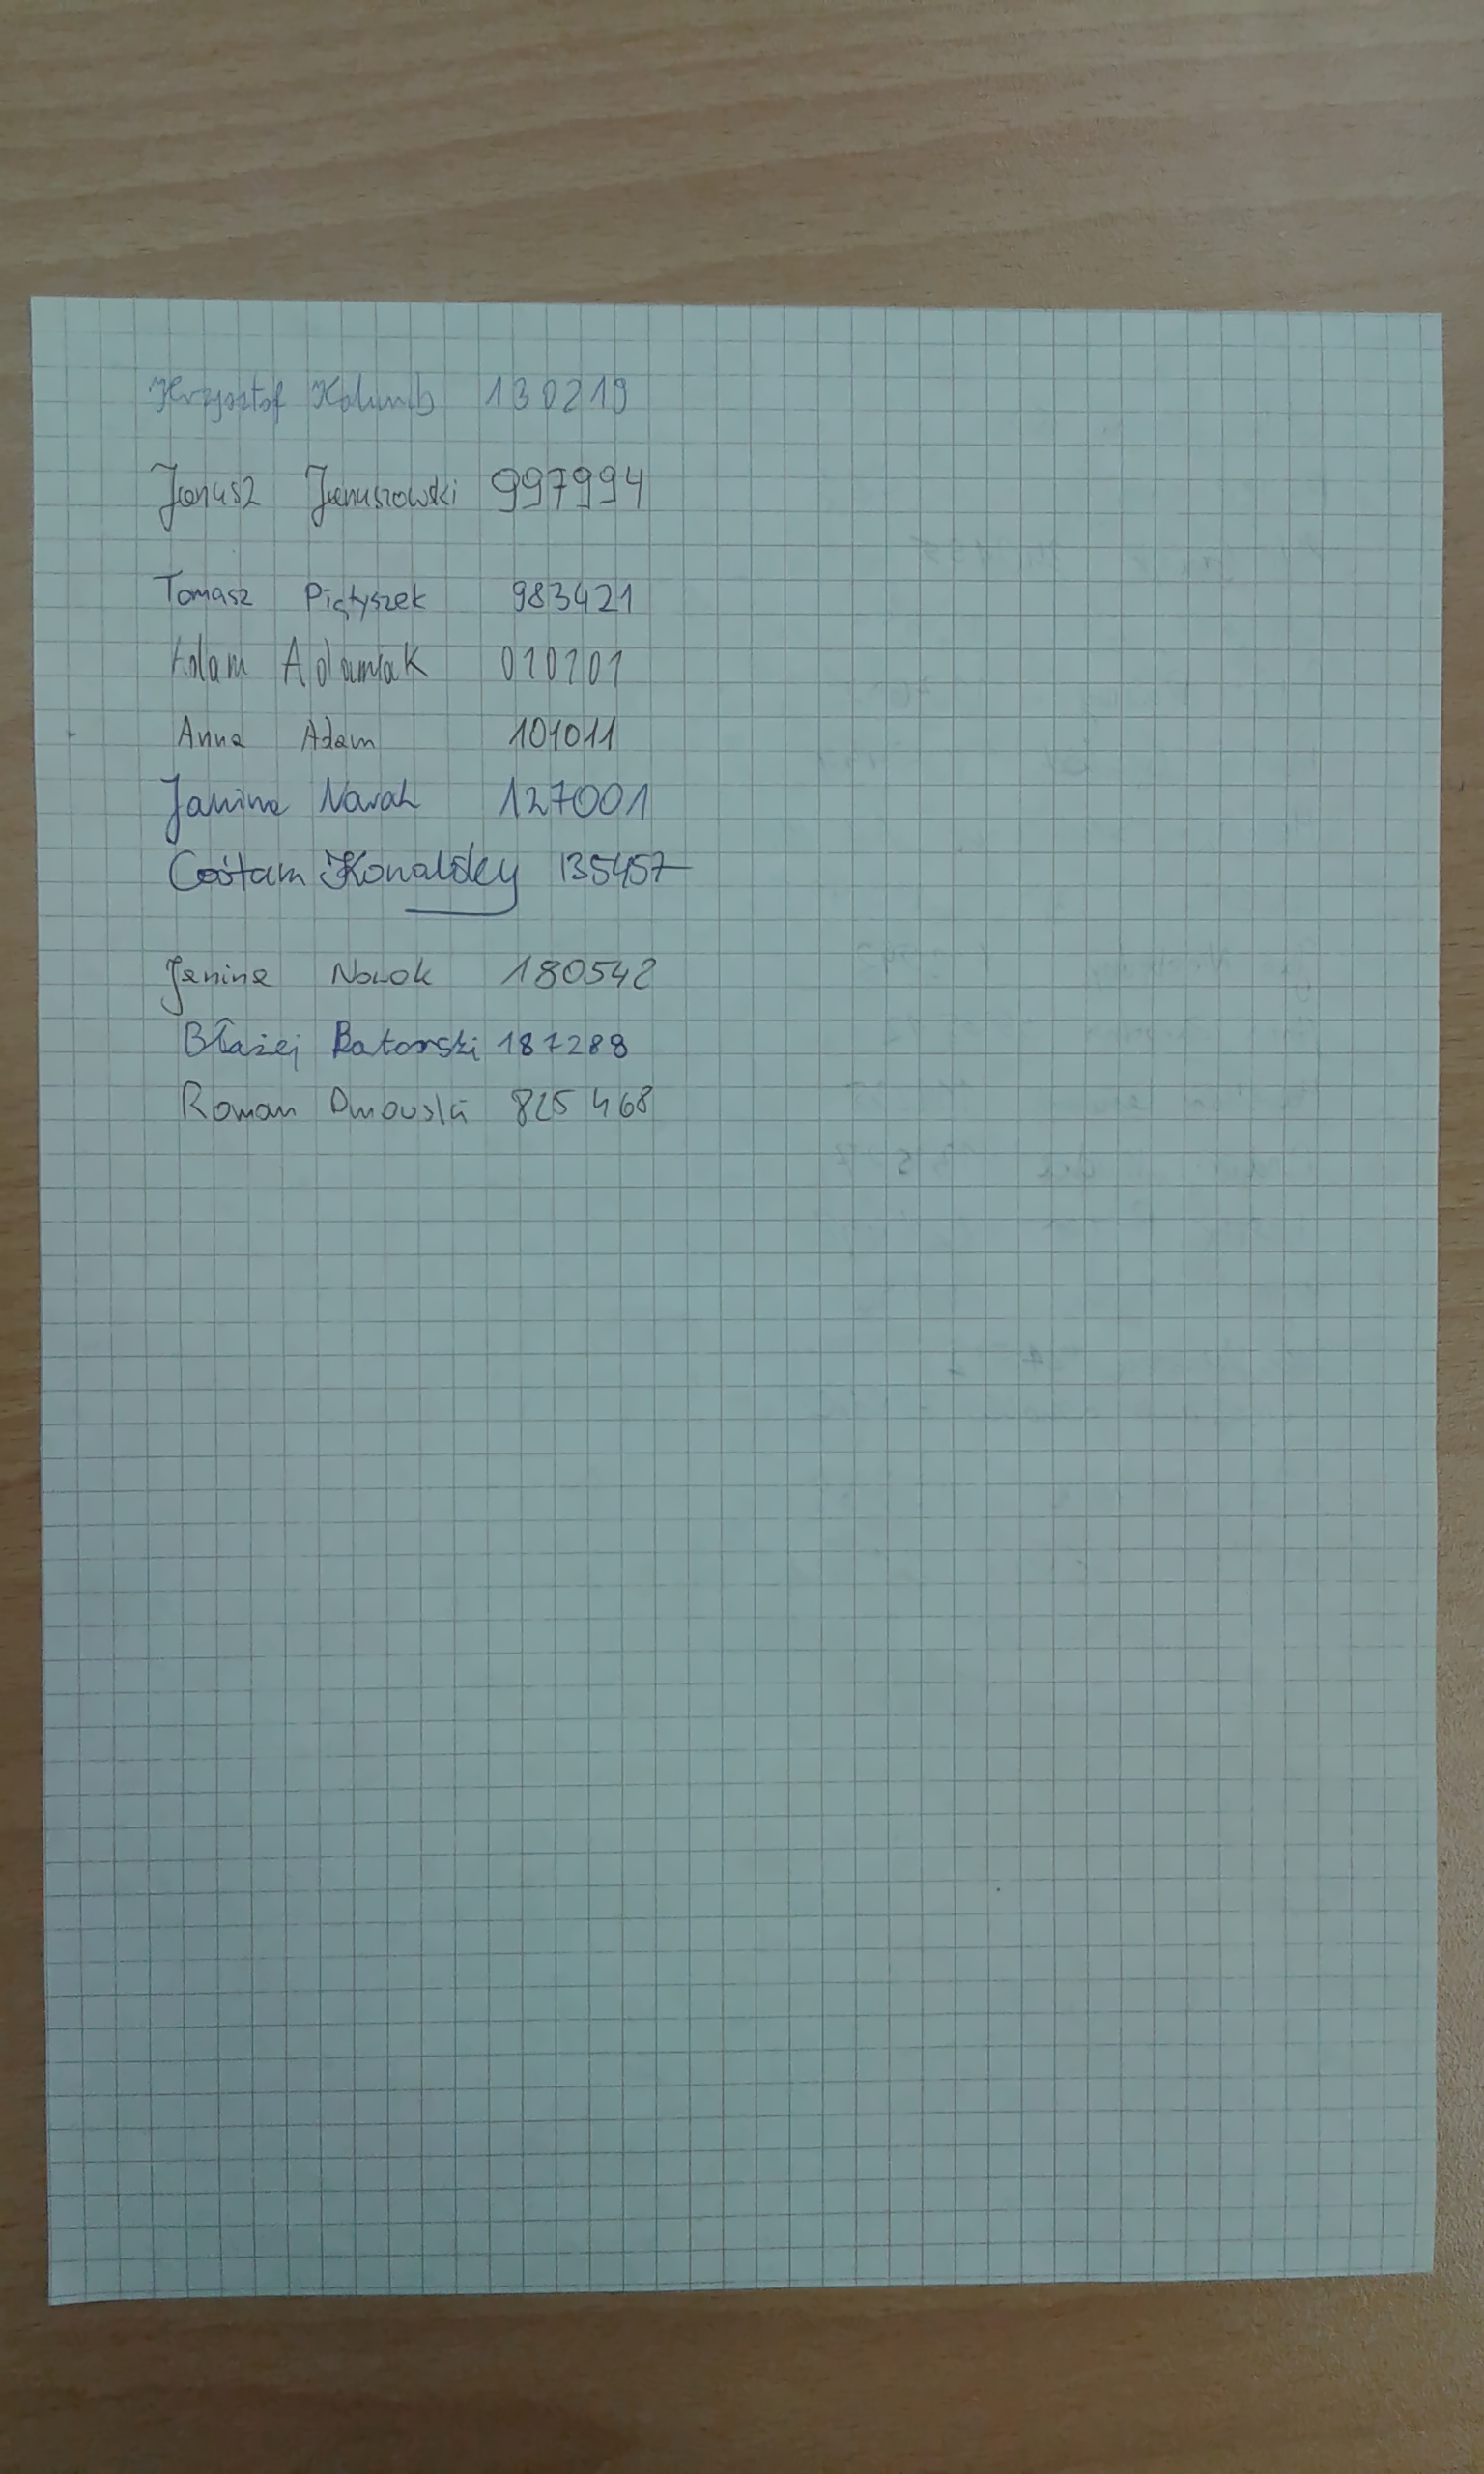 Krzysztof Kolumb 130219
Janusz Januszowski 997994
Tomasz Piątyszek 983421
Adam Adamiak 010101
Anna Adam 101011
Janina Nowak 127001
Cośtam Kowalsky 135457
Janina Nowak 180542
Błażej Batorski 187288
Roman Dmowski 825 468